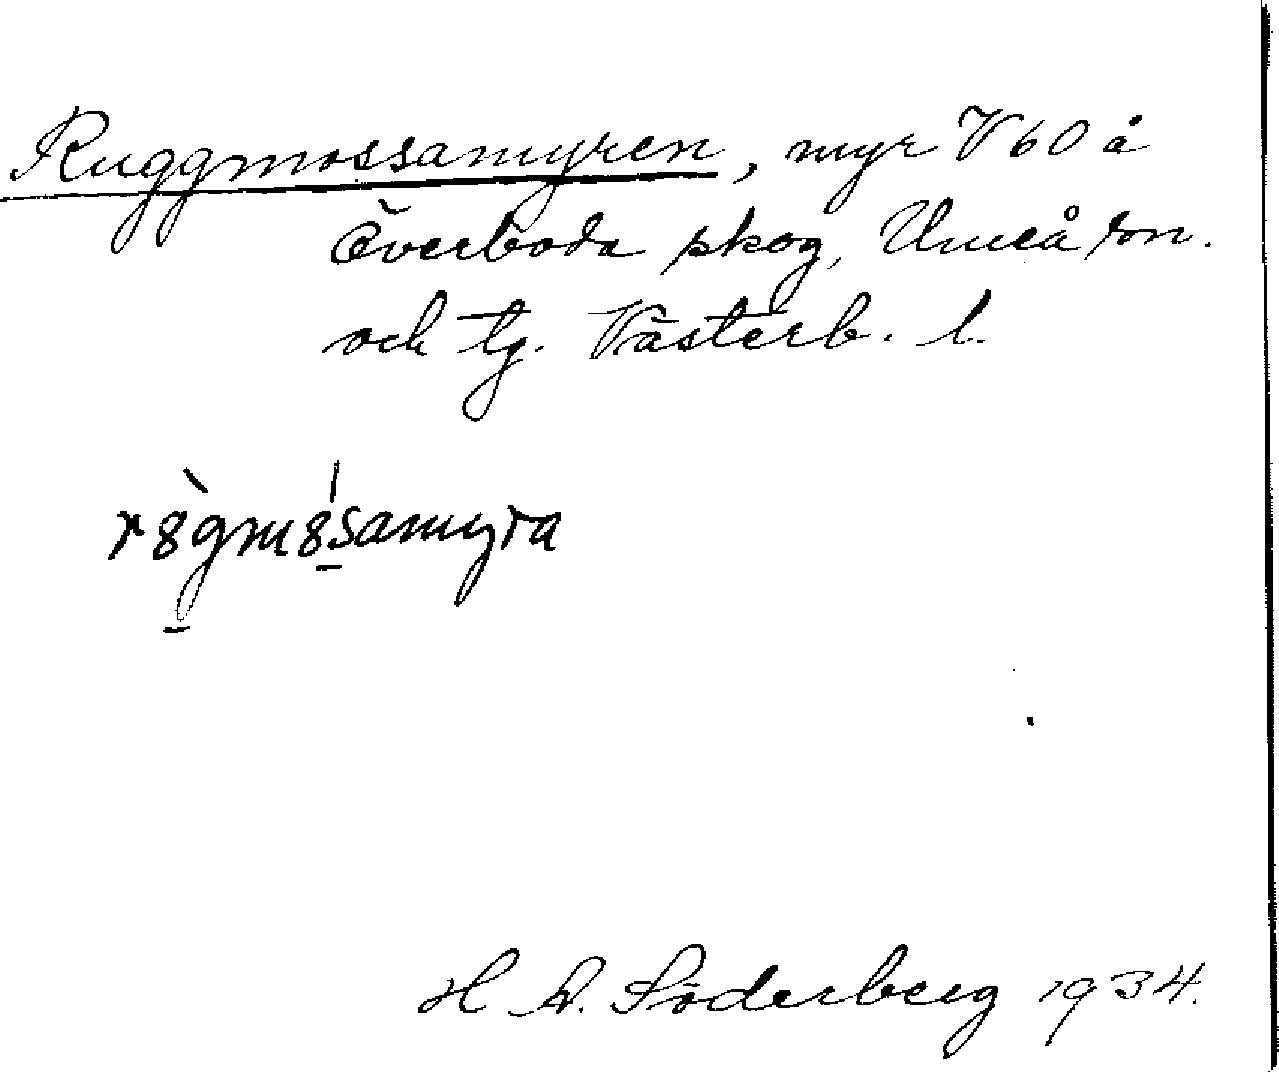 Ruggmossamyren, myr V 60 å
Överboda skog, Umeå sn.
och tg. Västerb. l.
r8̀gm8́samyra
H. A. Söderberg 1934.